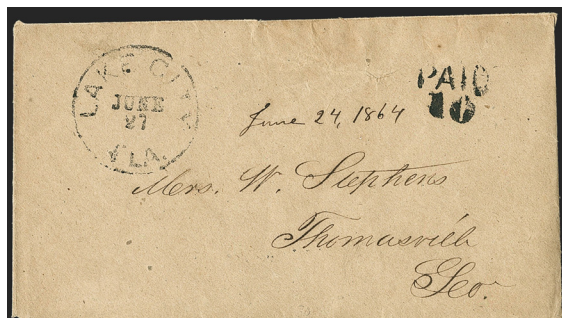 LAKE CITY
JUNE
27
FLA.
PAID
10
June 24, 1864
Mrs. W. Stephens
Thomasville
Geo.